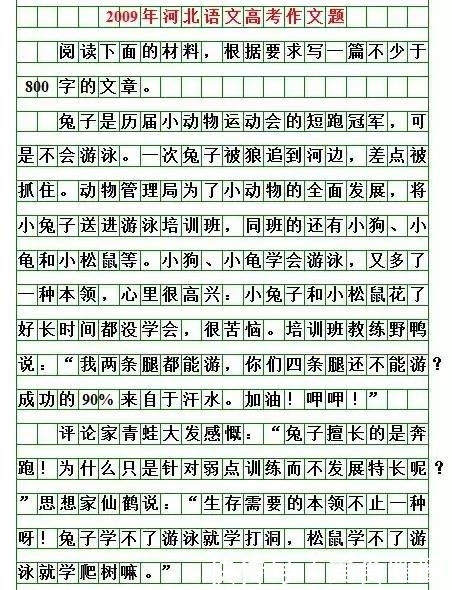 2009年河北语文高考作文题
阅读下面的材料，根据要求写一篇不少于
800 字的文章。
兔子是历届小动物运动会的短跑冠军，可
是不会游泳。一次兔子被狼追到河边，差点被
抓住。动物管理局为了小动物的全面发展，将
小兔子送进游泳培训班，同班的还有小狗、小
龟和小松鼠等。小狗、小龟学会游泳，又多了
一种本领，心里很高兴：小兔子和小松鼠花了
好长时间都没学会，很苦恼。培训班教练野鸭
说：“我两条腿都能游，你们四条腿还不能游？
成功的 90% 来自于汗水。加油！呷呷！”
评论家青蛙大发感慨：“兔子擅长的是奔
跑！为什么只是针对弱点训练而不发展特长呢？
”思想家仙鹤说：“生存需要的本领不止一种
呀！兔子学不了游泳就学打洞，松鼠学不了游
泳就学爬树嘛。”